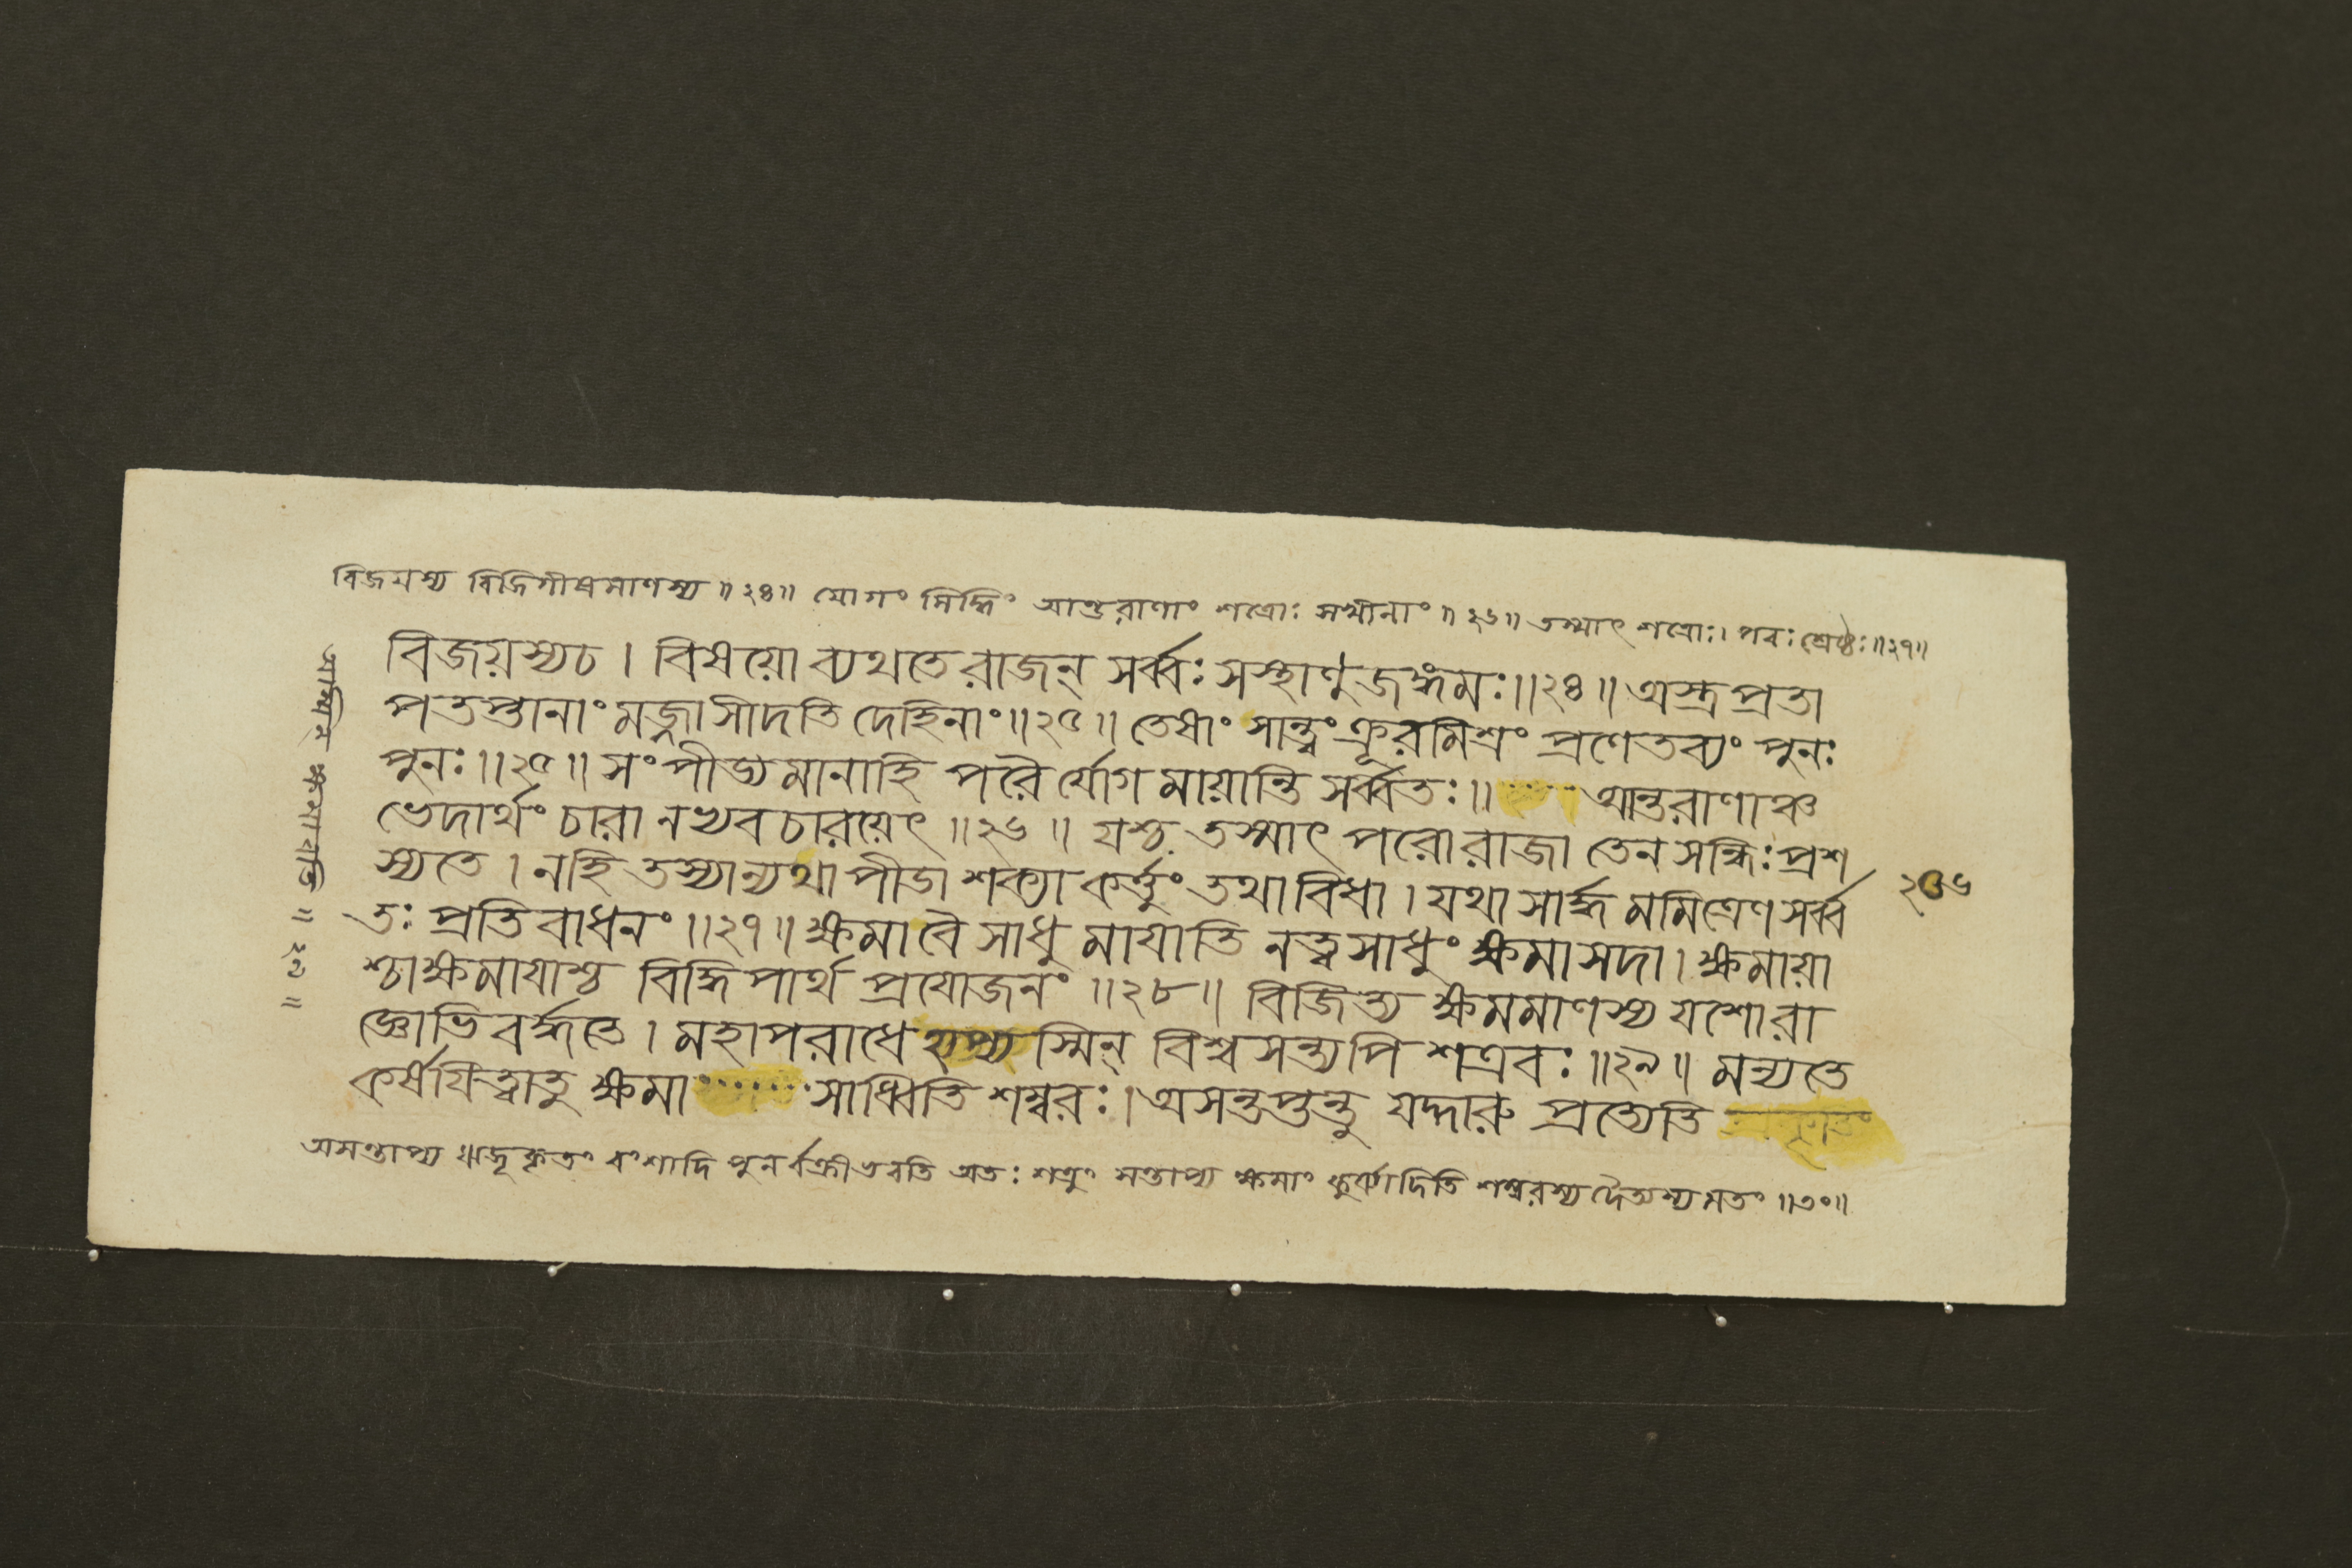 বিজয়স্য বিজিগীষমাণস্য ॥ ২৪॥ যোগং সিদ্ধিং আন্তরাণাং শত্রোঃ সখীনাং ॥ ২৬॥ তস্মাৎ শত্রোঃ। পরঃ শ্রেষ্ঠঃ॥২৭॥
বিজয়স্যচ। বিষয়ো ব্যথতে রাজন্ সর্ব্বঃ সস্থাণুজঙ্গমঃ॥২৪॥ অস্ত্রপ্রতা
পতপ্তানাং মজ্জাসীদতি দেহিনাং॥২৫॥ তেষাং সান্ত্বং ক্রূরমিশ্রং প্রণেতব্যং পুনঃ
পুনঃ॥২৫॥ সংপীড্যমানাহি পরৈর্যোগমায়ান্তি সর্ব্বতঃ॥ আন্তরাণাঞ্চ
ভেদার্থং চারানভ্যবচারয়েৎ॥২৬॥ যশ্চ তস্মাৎ পরোরাজা তেন সন্ধিঃ প্রশ
স্যতে। নহি তস্যান্যথা পীডা শক্যা কর্ত্তুং তথাবিধা। যথা সার্দ্ধমমিত্রেণ সর্ব্ব
২৩৬
তঃ প্রতিবাধনং॥২৭॥ ক্ষমা বৈ সাধুমাযাতি নত্বসাধুং ক্ষমা সদা। ক্ষমায়া
শ্চাক্ষমাযাশ্চ বিদ্ধি পার্থ প্রযোজনং॥২৮॥ বিজিত্য ক্ষমমাণস্য যশোরা
জ্ঞোভিবর্দ্ধতে। মহাপরাধে হ্যপ্যস্মিন্ বিশ্বসন্ত্যপি শত্রবঃ॥২৯॥ মন্যতে
কর্ষযিত্বাতু ক্ষমা সাধ্বিতি শম্বরঃ। অসন্তপ্তন্তু যদ্দারু প্রত্যেতি
অসন্তাপ্য ঋজূকৃতং বংশাদি পুনর্বক্রীভবতি অতঃ শত্রুং সন্তাপ্য ক্ষমাং কুর্ব্বাদিতি শম্বরস্য দৈত্যস্য মতং॥৩০॥